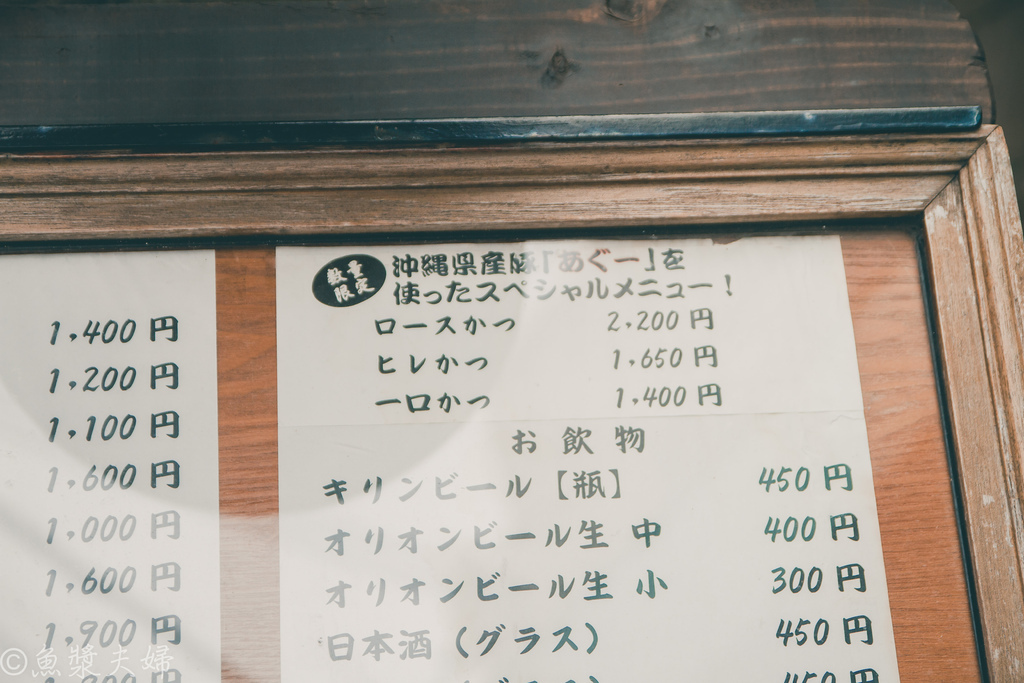 1,400円
1,200円
1,100円
1,600円
1,000円
1,600円
1,900円
数量限定
沖縄県産豚「あぐー」を
使ったスペシャルメニュー!
ロースかつ 2,200円
ヒレかつ 1,650円
一口かつ 1,400円
お飲物
キリンビール【瓶】 450円
オリオンビール生 中 400円
オリオンビール生 小 300円
日本酒(グラス) 450円
©魚漿夫婦